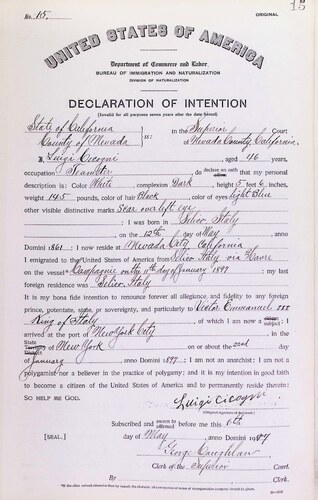 No. 15.
ORIGINAL
15
UNITED STATES OF AMERICA
Department of Commerce and Labor
BUREAU OF IMMIGRATION AND NATURALIZATION
DIVISION OF NATURALIZATION
DECLARATION OF INTENTION
(Invalid for all purposes seven years after the date hereof)
State of California
County of Nevada } ss: In the Superior Court
of Nevada County, California.
I, Luigi Cicogni, aged 46 years,
occupation Teamster, do declare on oath that my personal
description is: Color White, complexion Dark, height 5 feet 6 inches,
weight 145 pounds, color of hair Black, color of eyes light Blue
other visible distinctive marks Scar over left eye
I was born in Italy
on the 12th day of May, Anno
Domini 1861; I now reside at Nevada City California
I emigrated to the United States of America from Italy via Havre
on the vessel Campagnie on the 11th day of January 1897; my last
foreign residence was Italy
It is my bona fide intention to renounce forever all allegiance and fidelity to any foreign
prince, potentate, state, or sovereignty, and particularly to Victor Emmanuel III
King of Italy, of which I am now a subject; I
arrived at the port of New York City, in the
State of New York on or about the 22nd day
of January, anno Domini 1897; I am not an anarchist; I am not a
polygamist nor a believer in the practice of polygamy; and it is my intention in good faith
to become a citizen of the United States of America and to permanently reside therein:
SO HELP ME GOD.
Luigi Cicogni
Subscribed and sworn to before me this 6th
[SEAL.] day of May, anno Domini 1907
George Coughlan
Clerk of the Superior Court.
By, Clerk.